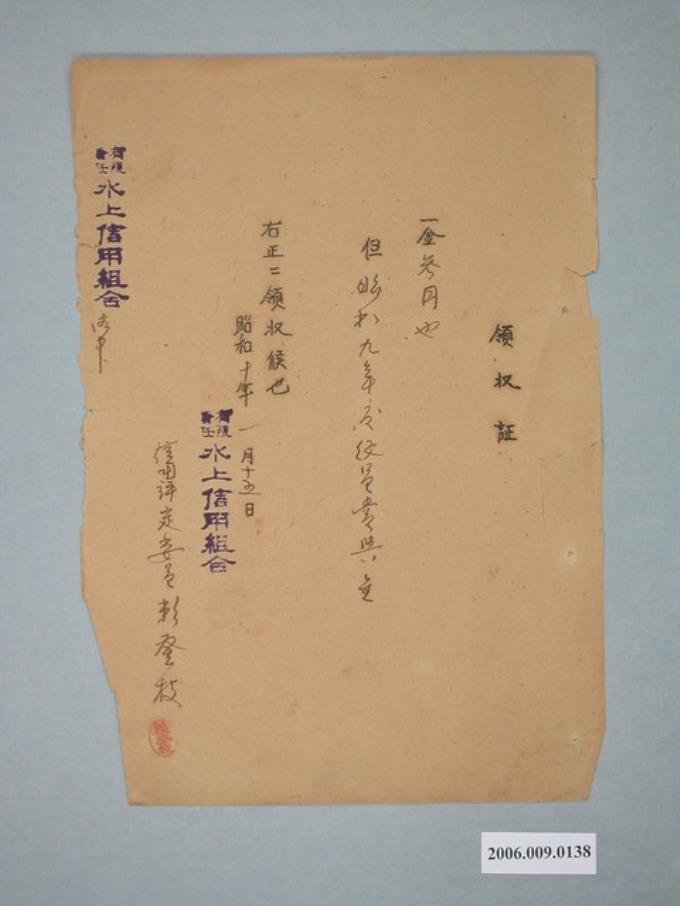 領収証
一金参円也
但昭和九年度役員賞與金
右正ニ領収候也
昭和十年一月十五日
有限責任水上信用組合
信用評定委員 頼登枝
有限責任水上信用組合 御中
2006.009.0138